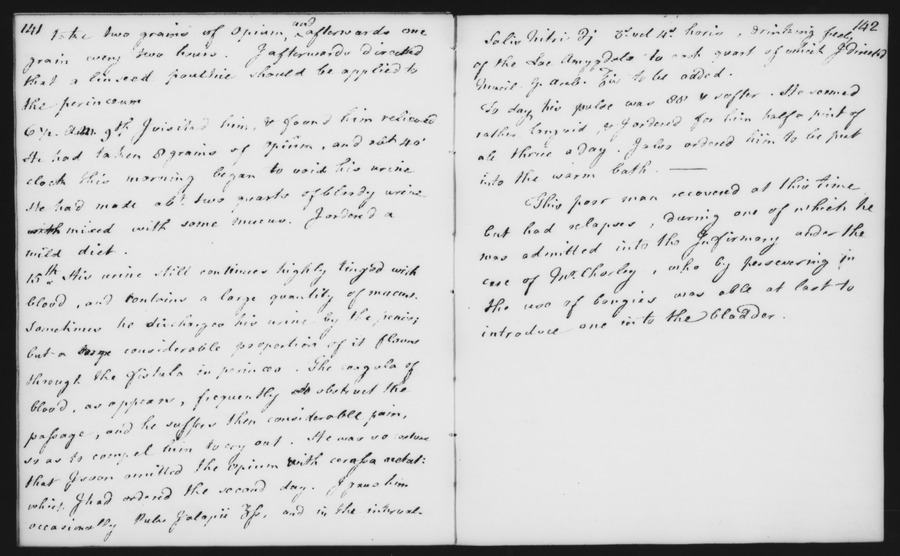 141
take two grains of opium, and afterwards one
grain every two hours. I afterwards directed
that a linseed poultice should be applied to
the perinæum
6 P.M. 9th I visited him, & found him relieved
He had taken 8 grains of opium, and abt 4 o'
clock this morning began to void his urine
He had made abt two quarts of bloody urine
mixed with some mucus. I ordered a
mild diet.
15th His urine still continues highly tinged with
blood, and contains a large quantity of mucus.
Sometimes he discharges his urine by the penis;
but a large considerable proportion of it flows
through the fistula in perineo. The coagula of
blood, as appears, frequently obstruct the
passage, and he suffers then considerable pain,
so as to compel him to cry out. He was so
that I soon omitted the opium with cerussa acetat:
which I had ordered the second day. I gave him
occasionally Pulv. Jalapii ʒſs, and in the interval
142
Salis Nitri ℈j 3a vel 4a horis, drinking freely
of the Lac Amygdalæ to each quart of which I directed
Mucil. G. Arab. to be added.
To day his pulse was 88 & softer. He seemed
rather languid, & I ordered for him half a pint of
ale thrice a day. I also ordered him to be put
into the warm bath. —
This poor man recovered at this time
but had relapses, during one of which he
was admitted into the Infirmary under the
care of Mr. Chorley, who by persevering in
the use of bougies was able at last to
introduce one into the bladder.